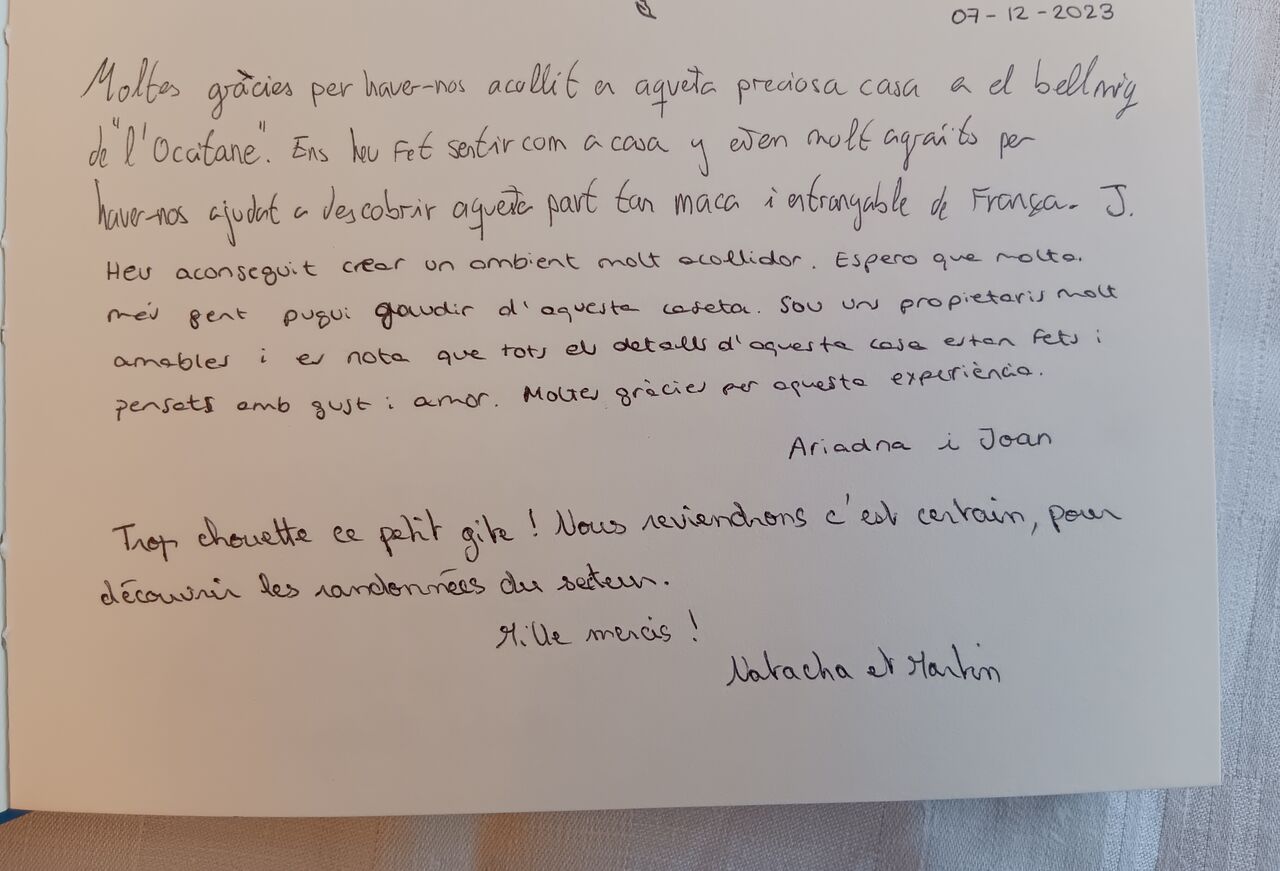 07-12-2023
Moltes gràcies per haver-nos acollit en aqueta preciosa casa a el bellmig
de "l'Occitane". Ens heu fet sentir com a casa y estem molt agraïts per
haver-nos ajudat a descobrir aquesta part tan maca i entranyable de França. J.
Heu aconseguit crear un ambient molt acollidor. Espero que molta
més gent pugui gaudir d'aquesta caseta. Sou uns propietaris molt
amables i es nota que tots els detalls d'aquesta casa estan fets i
pensats amb gust i amor. Moltes gràcies per aquesta experiència.
Ariadna i Joan
Trop chouette ce petit gite ! Nous reviendrons c'est certain, pour
découvrir les randonnées du secteur.
Mille mercis !
Natacha et Martin